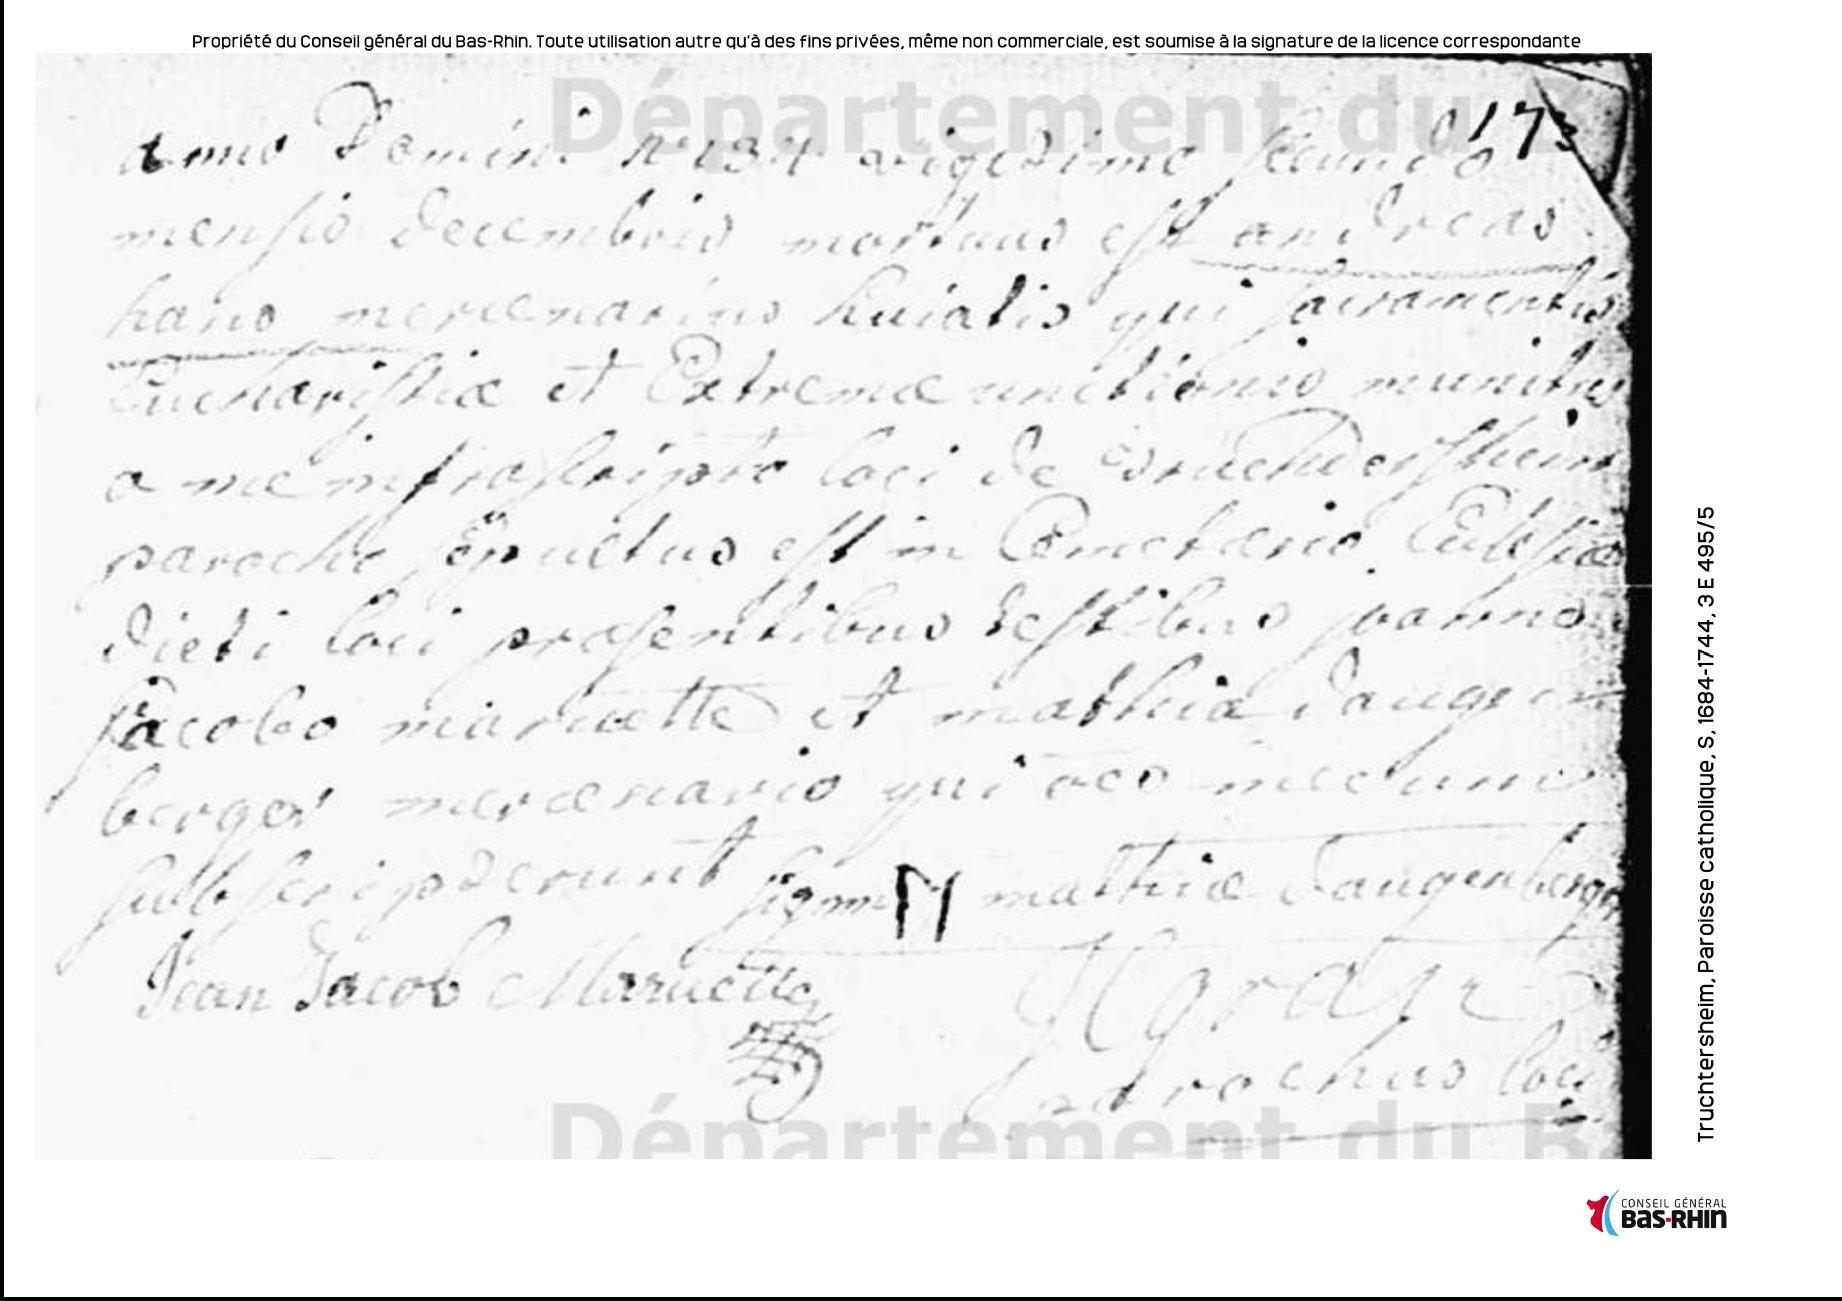 Propriété du Conseil général du Bas-Rhin. Toute utilisation autre qu'à des fins privées, même non commerciale, est soumise à la signature de la licence correspondante
Département du
173
anno Domini 1734 vigesimo secundo
mensis decembris mortuus est andreas
hans mercenarius huiatis qui sacramentis
Eucharistiæ et Extremæ unctionis munitus
a me infrascripto loci de Truchdersheim
parocho sepultus est in Cœmeterio Ecclesiæ
dicti loci præsentibus testibus joanne
jacobo maruette et mathia daugen
berger mercenario qui hæc mecum
subscripserunt signum M mathiæ daugenberger
Jean Jacob Maruette
parochus loci
Département du B
Truchtersheim, Paroisse catholique, S, 1684-1744, 3 E 495/5
CONSEIL GÉNÉRAL
BAS-RHIN